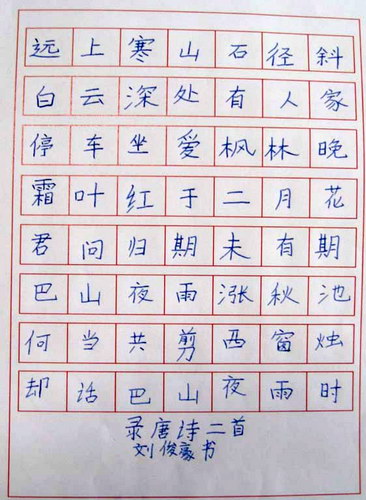 远上寒山石径斜
白云深处有人家
停车坐爱枫林晚
霜叶红于二月花
君问归期未有期
巴山夜雨涨秋池
何当共剪西窗烛
却话巴山夜雨时
录唐诗二首
刘俊豪书